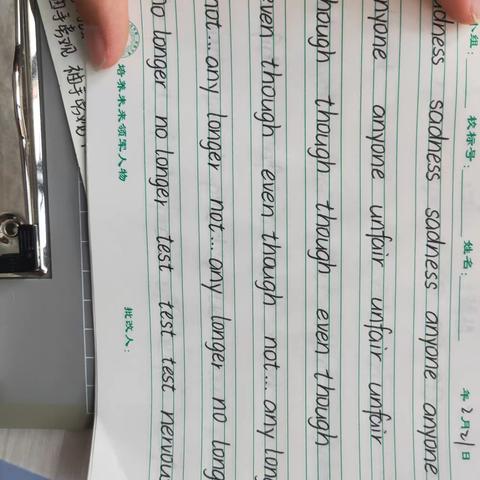 组： 校标号： 姓名： 年2月21日
dness sadness sadness anyone anyone
nyone anyone unfair unfair unfair
hough though though even though
even though even though not... any long
not...any longer not...any longer no long
no longer no longer test test test nervou
培养未来领军人物 批改人：
袖手旁观